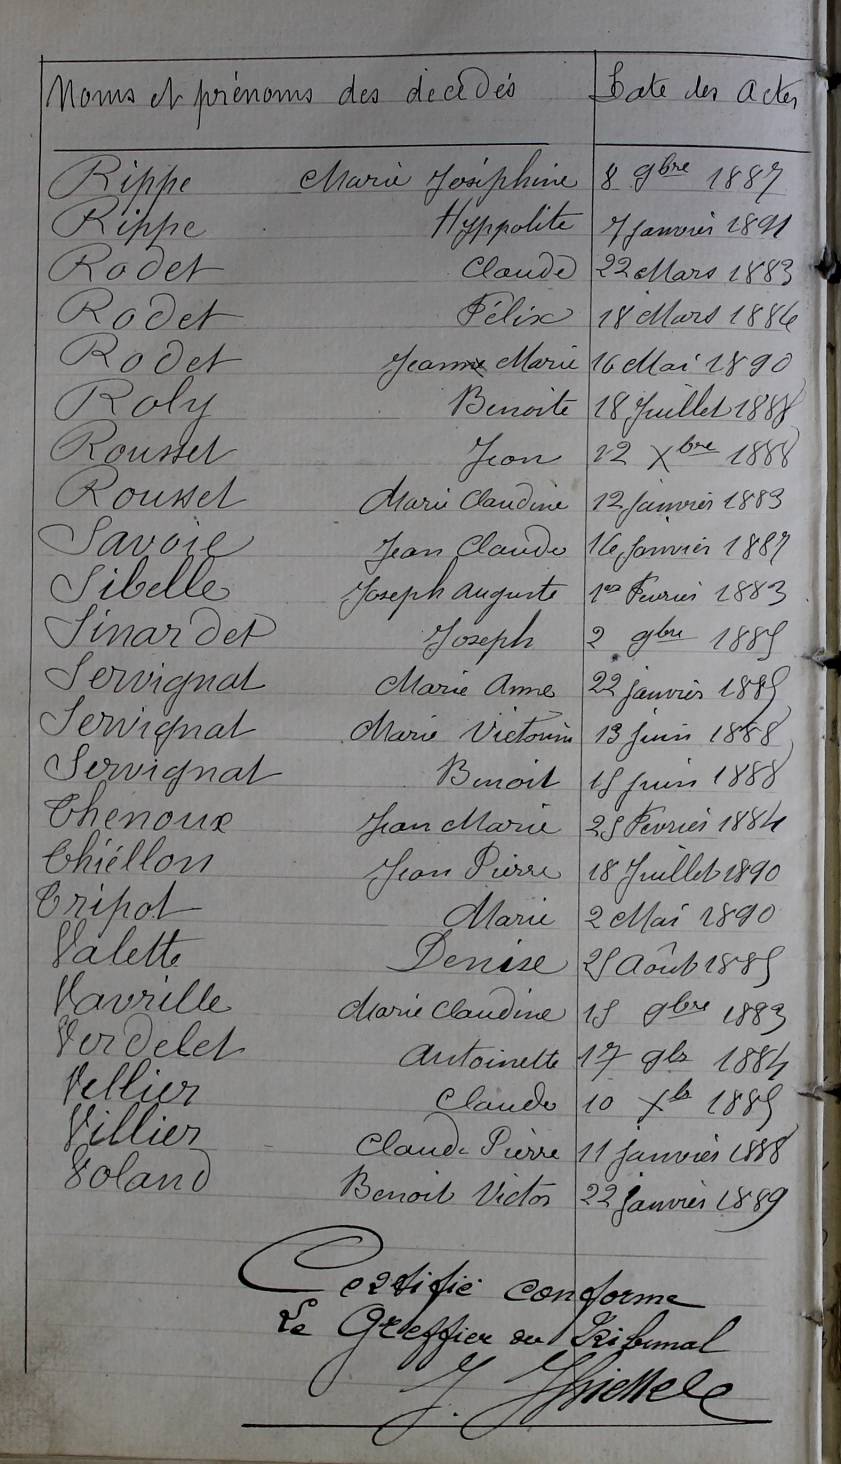 Noms et prénoms des décédés Date des Actes
Rippe Marie Joséphine 8 9bre 1887
Rippe Hyppolite 7 janvier 1891
Rodet Claude 22 Mars 1883
Rodet Félix 18 Mars 1884
Rodet Jean Marie 16 Mai 1890
Roly Benoite 18 Juillet 1888
Rousset Jean 12 Xbre 1888
Rousset Marie Claudine 12 janvier 1883
Savoie Jean Claude 16 Janvier 1887
Sibelle Joseph Auguste 1er Février 1883
Sinardet Joseph 2 9bre 1885
Servignat Marie Anne 22 janvier 1885
Servignat Marie Victorin 13 Juin 1888
Servignat Benoit 15 Juin 1888
Thenoux Jean Marie 25 Février 1884
Thiéllon Jean Pierre 18 Juillet 1890
Tripot Marie 2 Mai 1890
Valette Denise 25 Août 1885
Vavrille Marie Claudine 15 9bre 1883
Verdelet Antoinette 17 9br 1884
Vellier Claude 10 Xbr 1885
Villier Claude Pierre 11 janvier 1888
Voland Benoit Victor 22 janvier 1889
Certifié conforme
Le Greffier du Tribunal
J.